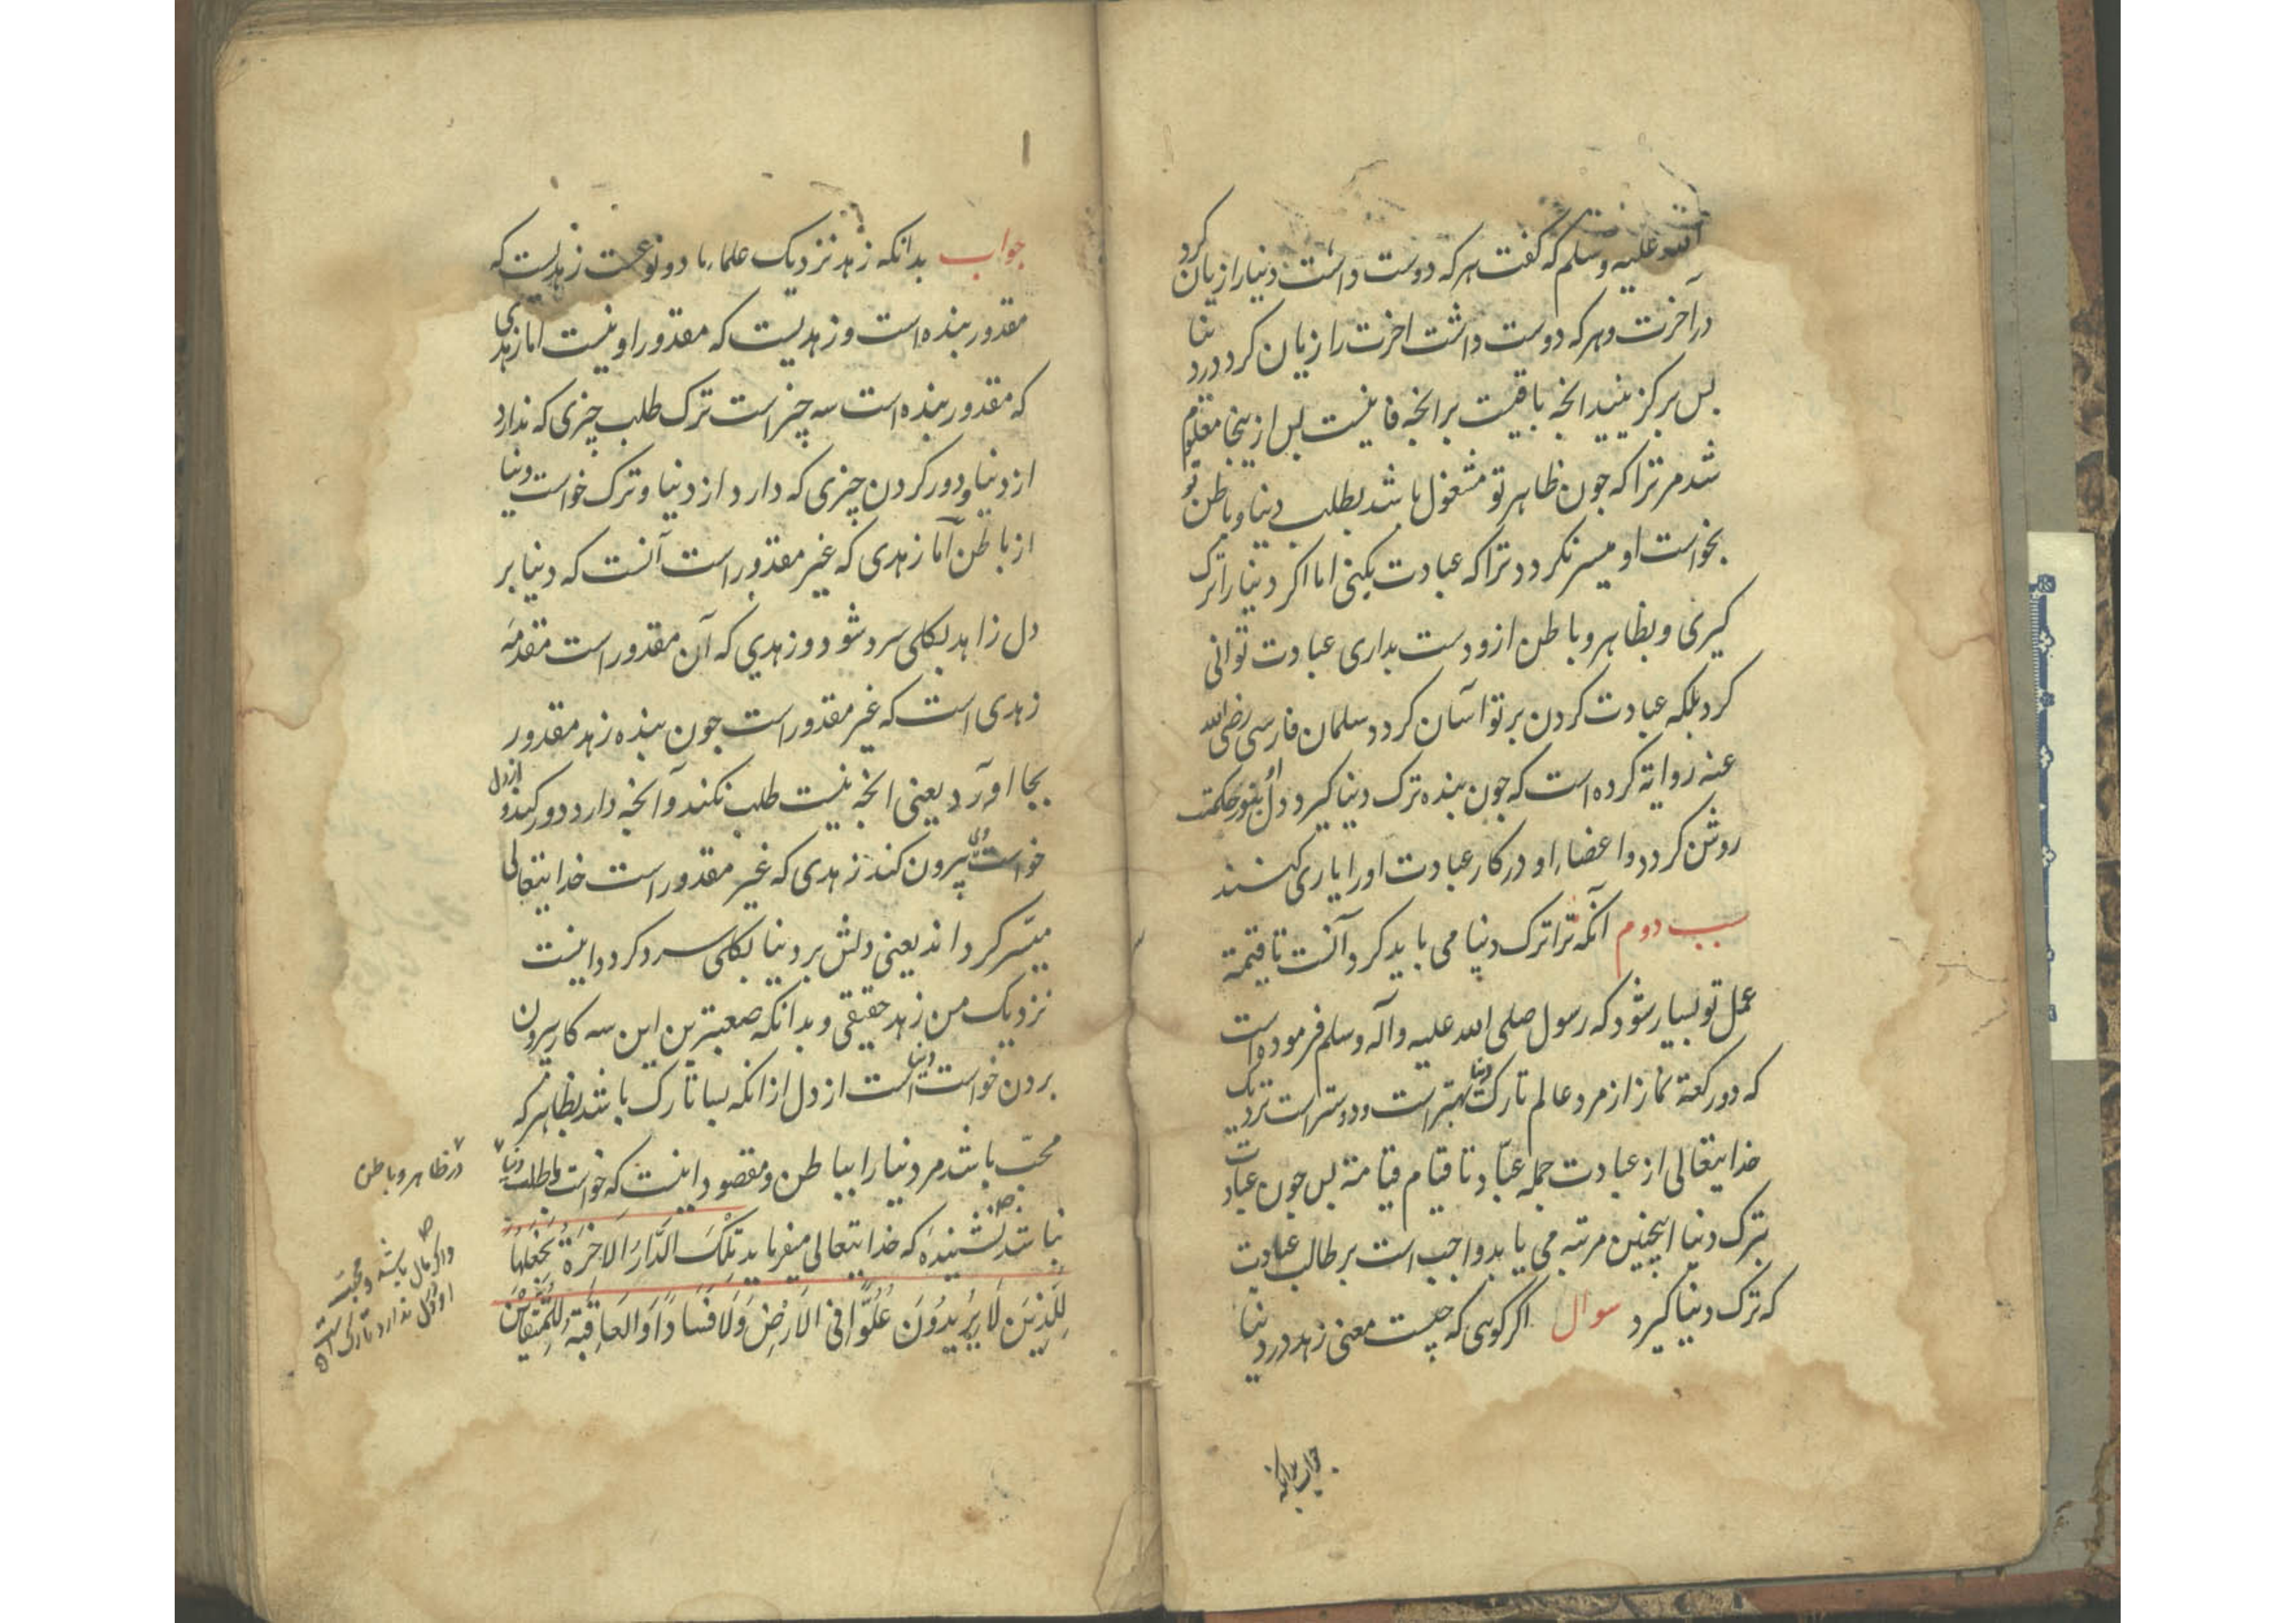 الله علیه وسلم که گفت هرکه دوست داشت دنیا را زیان کرد
در آخرت وهرکه دوست داشت اخرت را زیان کرد در دنیا
بس برکزینید انچه باقیست بر انچه فانیست بس از ینجا معلوم
شد مر ترا که جون ظاهر تو مشغول باشد بطلب دنیا و باطن تو
بخواست او میسر نکردد ترا که عبادت بکنی اما اکر دنیا را ترک
کیری و بظاهر و باطن ازو دست بداری عبادت توانی
کرد بلکه عبادت کردن بر تو آسان کردد سلمان فارسی رضی الله
عنه روایة کرده است که جون بنده ترک دنیا کیرد دل او بنور حکمت
روشن کردد و اعضاء او در کار عبادت اورا یاری کنند
سبب دوم آنکه ترا ترک دنیا می باید کرد آنست تا قیمة
عمل تو بسیار شود که رسول صلی الله علیه وآله وسلم فرموده است
که دو رکعة نماز از مرد عالم تارک دنیا بهتر است و دوستر است نزدیک
خدایتعالی از عبادت جمله عبّاد تا قیام قیامة بس جون عبادت
بترک دنیا اینچنین مرتبه می یابد واجب است بر طالب عبادت
که ترک دنیا کیرد سوال اکر کویی که چیست معنی زهد در دنیا
جواب بدانکه
جواب بدانکه زهد نزدیک علماء ما دو نوعست زهدیست که
مقدور بنده است و زهدیست که مقدور او نیست اما زهدی
که مقدور بنده است سه چیز است ترک طلب چیزی که ندارد
از دنیا و دور کردن چیزی که دارد از دنیا و ترک خواست دنیا
از باطن آما زهدی که غیر مقدور است آنست که دنیا بر
دل زاهد بکلی سرد شود و زهدی که آن مقدور است مقدمهٔ
زهدی است که غیر مقدور است جون بنده زهد مقدور
بجا اورد یعنی انچه نیست طلب نکند و آنچه دارد دور کند و از دل
خواست وی بیرون کند زهدی که غیر مقدور است خدایتعالی
میسّر کرداند یعنی دلش بر دنیا بکلی سرد کردد اینست
نزدیک من زهد حقیقی و بدانکه صعبترین این سه کار بیرون
بردن خواست دنیا است از دل از انکه بسا تارک باشد بظاهر که
محبّ باشد مر دنیا را بباطن و مقصود اینست که خواست و طلب دنیا
در ظاهر و باطن
نباشد نشنیدهٔ که خدایتعالی میفرماید تِلْكَ الدَّارُ الاَخِرَةُ نَجْعَلُهَا
لِلَّذِينَ لَا يُرِيدُونَ عُلُوًّا فِي الاَرْضِ وَلَا فَسَادًا وَالعَاقِبَةُ لِلمُتَّقِينَ
واکر مال باشد و محبت
او در دل ندارد تارک است